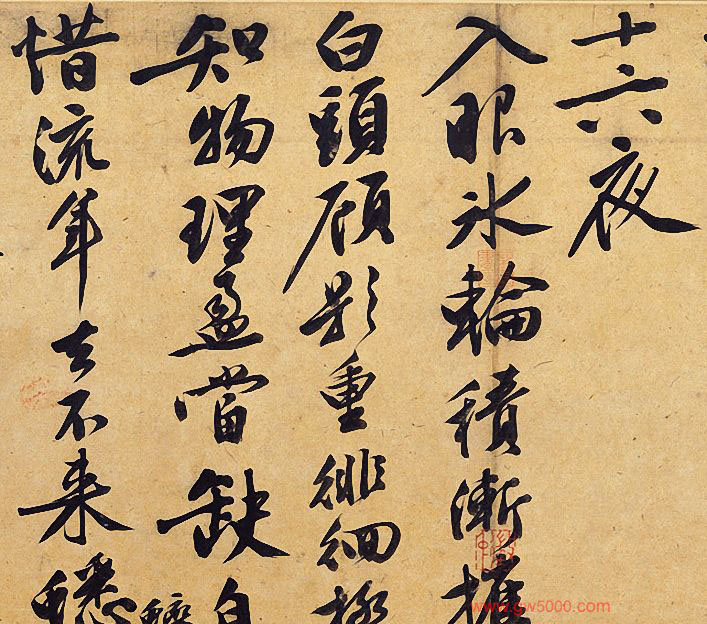 十六夜
入眼冰輪積漸摧
白頭顧影重徘徊極
知物理盈當缺自
惜流年去不来
www.gw5000.com